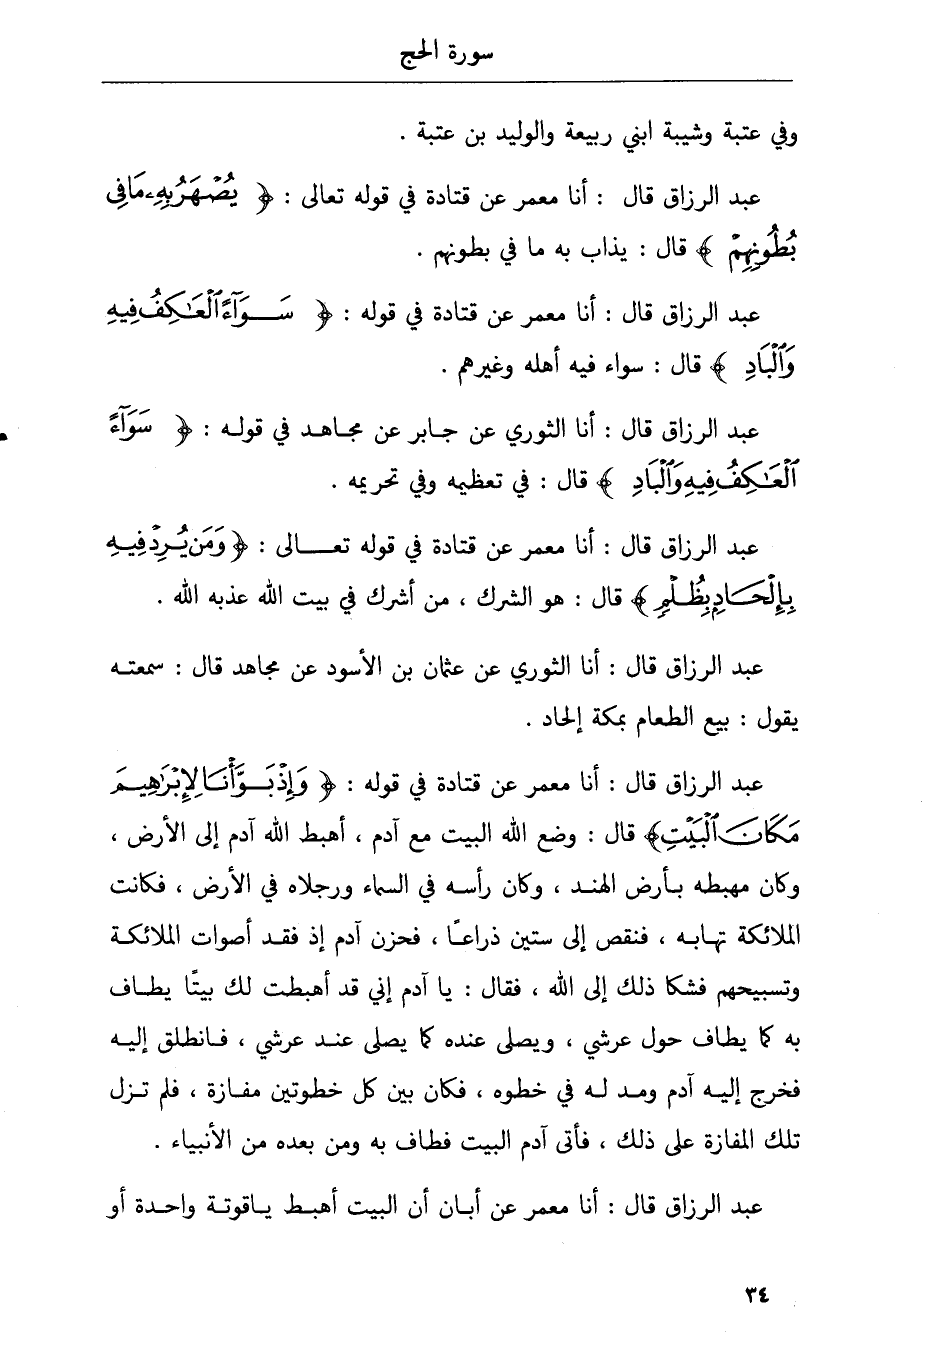 سورة الحج
وفي عتبة وشيبة ابني ربيعة والوليد بن عتبة .
عبد الرزاق قال : أنا معمر عن قتادة في قوله تعالى : ﴿ يُصْهَرُ بِهِۦ مَا فِى
بُطُونِهِمْ ﴾ قال : يذاب به ما في بطونهم .
عبد الرزاق قال : أنا معمر عن قتادة في قوله : ﴿ سَوَآءً ٱلْعَـٰكِفُ فِيهِ
وَٱلْبَادِ ﴾ قال : سواء فيه أهله وغيرهم .
عبد الرزاق قال : أنا الثوري عن جابر عن مجاهد في قوله : ﴿ سَوَآءً
ٱلْعَـٰكِفُ فِيهِ وَٱلْبَادِ ﴾ قال : في تعظيمه وفي تحريمه .
عبد الرزاق قال : أنا معمر عن قتادة في قوله تعالى : ﴿ وَمَن يُرِدْ فِيهِ
بِإِلْحَادٍ بِظُلْمٍ ﴾ قال : هو الشرك ، من أشرك في بيت الله عذبه الله .
عبد الرزاق قال : أنا الثوري عن عثمان بن الأسود عن مجاهد قال : سمعته
يقول : بيع الطعام بمكة إلحاد .
عبد الرزاق قال : أنا معمر عن قتادة في قوله : ﴿ وَإِذْ بَوَّأْنَا لِإِبْرَٰهِيمَ
مَكَانَ ٱلْبَيْتِ ﴾ قال : وضع الله البيت مع آدم ، أهبط الله آدم إلى الأرض ،
وكان مهبطه بأرض الهند ، وكان رأسه في السماء ورجلاه في الأرض ، فكانت
الملائكة تهابه ، فنقص إلى ستين ذراعًا ، فحزن آدم إذ فقد أصوات الملائكة
وتسبيحهم فشكا ذلك إلى الله ، فقال : يا آدم إني قد أهبطت لك بيتًا يطاف
به كما يطاف حول عرشي ، ويصلى عنده كما يصلى عند عرشي ، فانطلق إليه
فخرج إليه آدم ومد له في خطوه ، فكان بين كل خطوتين مفازة ، فلم تزل
تلك المفازة على ذلك ، فأتى آدم البيت فطاف به ومن بعده من الأنبياء .
عبد الرزاق قال : أنا معمر عن أبان أن البيت أهبط ياقوتة واحدة أو
٣٤